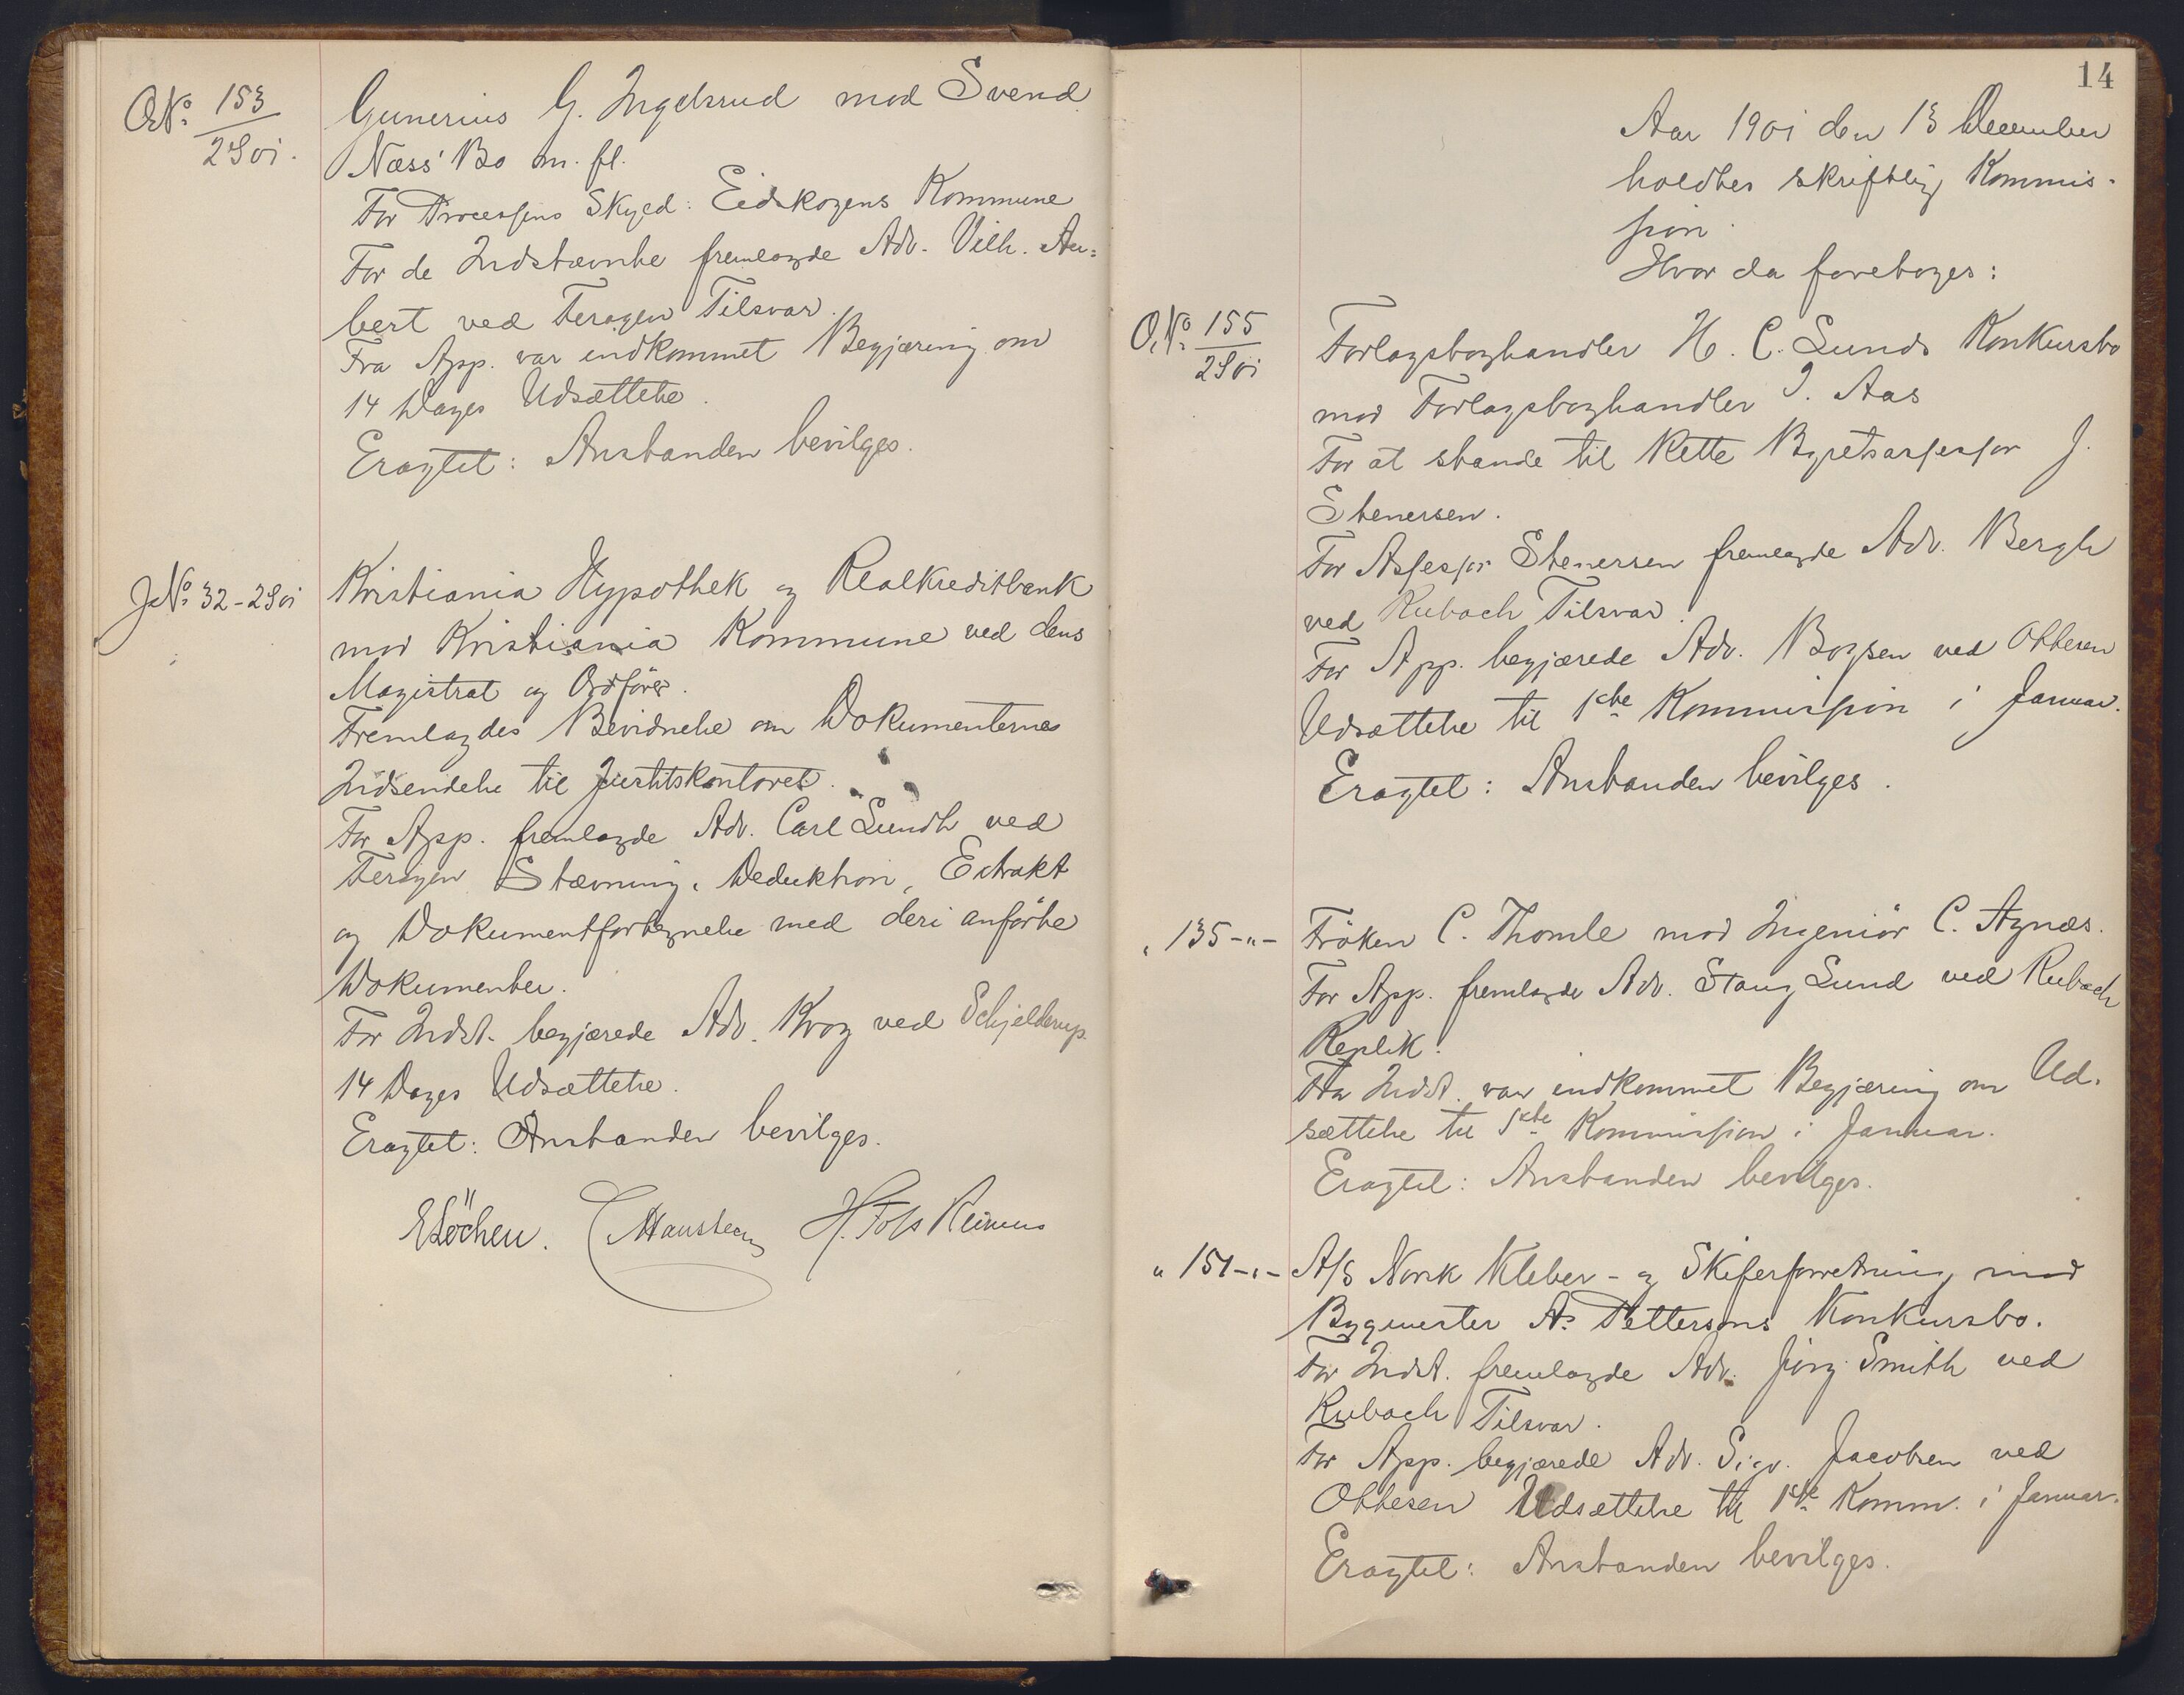 O.No. 153
2S01.
Gunerius G. Ingelsrud mod Svend
Næss' Bo m. fl.
For Processens Skyld: Eidskogens Kommune
For de Indstævnte fremlagde Adv. Vilh. Au-
bert ved Feragen Tilsvar.
Fra App. var indkommet Begjæring om
14 Dages Udsættelse.
Eragtet: Anstanden bevilges.
J.No. 32-2S01
Kristiania Hypothek og Realkreditbank
mod Kristiania Kommune ved dens
Magistrat og Ordfører.
Fremlagdes Bevidnelse om Dokumenternes
Indsendelse til Justitskontoret.
For App. fremlagde Adv. Carl Lundh ved
Feragen Stævning, Deduktion, Extrakt
og Dokumentfortegnelse med deri anførte
Dokumenter.
For Indst. begjærede Adv. Krog ved Schjelderup
14 Dages Udsættelse.
Eragtet: Anstanden bevilges.
E Löchen. Hansteen H. Foss
14
Aar 1901 den 13 December
holdtes skriftlig Kommis-
sion.
Hvor da foretoges:
O.No. 155
2S01
Forlagsboghandler H. C. Lunds Konkursbo
mod Forlagsboghandler I. Aas
For at stande til Rette Byretsassessor J.
Stenersen.
For Assessor Stenersen fremlagde Adv. Bergh
ved Kubach Tilsvar.
For App. begjærede Adv. Boysen ved Ottesen
Udsættelse til 1ste Kommission i Januar.
Eragtet: Anstanden bevilges.
" 135-"-
Frøken C. Thomle mod Ingeniør C. Agnæs.
For App. fremlagde Adv. Stang Lund ved Rubach
Replik.
Fra Indst. var indkommet Begjæring om Ud-
sættelse til 1ste Kommission i Januar.
Eragtet: Anstanden bevilges.
" 151-"-
A/S Norsk Kleber- og Skiferforretning mod
Bygmester A. Pettersons Konkursbo.
For Indst. fremlagde Adv. Jørg. Smith ved
Rubach Tilsvar.
For App. begjærede Adv. Sigv. Jacobsen ved
Ottesen Udsættelse til 1ste Komm. i Januar.
Eragtet: Anstanden bevilges.